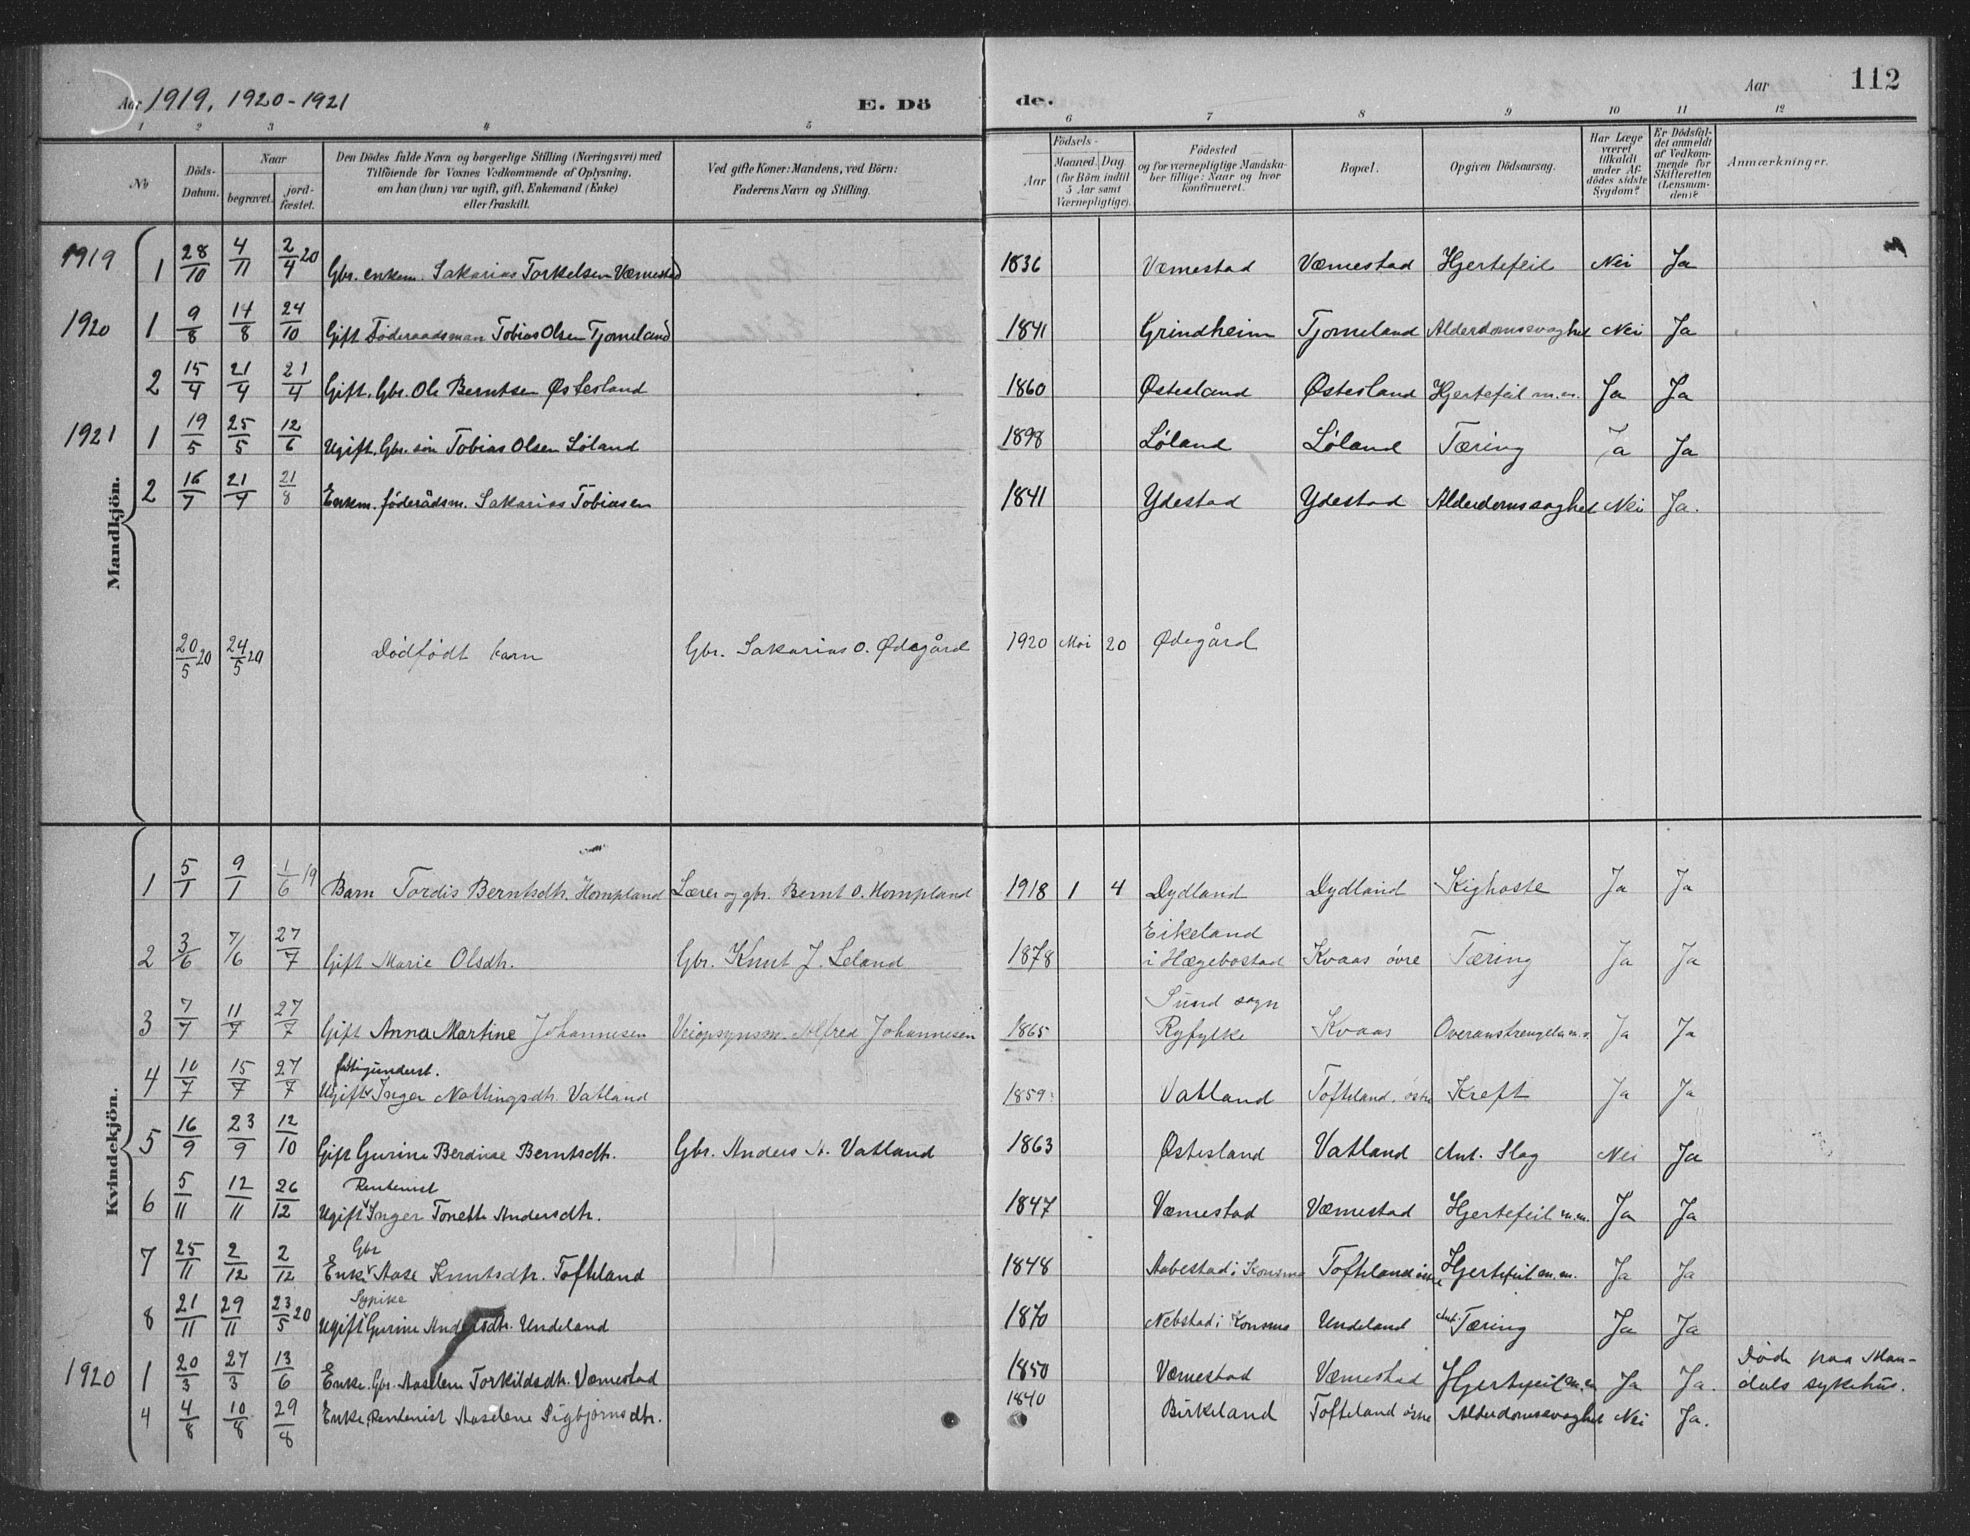 Aar 1919, 1920-1921 E. Dö de. Aar 112
1 2 3 4 5 6 7 8 9 10 11 12
No
Döds-Datum.
Naar
begravet.
jord-fæstet.
Den Dödes fulde Navn og borgerlige Stilling (Næringsvei) med
Tilföiende for Voxnes Vedkommende af Oplysning,
om han (hun) var ugift, gift, Enkemand (Enke)
eller fraskilt.
Ved gifte Koner: Mandens, ved Börn:
Faderens Navn og Stilling.
Födsels-
Aar
Maaned. Dag
(for Börn indtil
5 Aar samt
Værnepligtige).
Födested
og for værnepligtige Mandska-
ber tillige: Naar og hvor
konfirmeret.
Bopæl.
Opgiven Dödsaarsag.
Har Læge
været
tilkaldt
under Af-
dödes sidste
Sygdom?
Er Dödsfal-
det anmeldt
af Vedkom-
mende for
Skifteretten
(Lensman-
den)?
Anmærkninger.
Mandkjön.
1919 1 28/10 4/11 2/4 20 Gbr. enkem. Sakarias Torkelsen Væmestad 1836 Væmestad Væmestad Hjertefeil Nei Ja
1920 1 9/8 14/8 24/10 Gift Føderaadsman Tobias Olsen Tjomeland 1841 Grindheim Tjomeland Alderdomssvaghet Nei Ja
2 15/4 21/4 21/4 Gift. Gbr. Ole Berntsen Østesland 1860 Østesland Østesland Hjertefeil m.m. Ja Ja
1921 1 19/5 25/5 12/6 Ugift. Gbr. søn Tobias Olsen Løland 1898 Løland Løland Tæring Ja Ja
2 16/7 21/7 21/8 Enkm. føderådsm. Sakarias Tobiasen 1841 Ydestad Ydestad Alderdomssvaghet Nei Ja.
20/5 20 24/5 20 Dødfødt barn Gbr. Sakarias O. Ødegård 1920 Mai 20 Ødegård
Kvindekjön.
1 5/1 9/1 1/6 19 Barn Tordis Berntsdtr. Hompland Lærer og gbr. Bernt O. Hompland 1918 1 4 Dydland Dydland Kighoste Ja Ja
2 3/6 7/6 27/7 Gift Marie Olsdtr. Gbr. Knut J. Leland 1878 Eikeland
i Hægebostad Kvaas øvre Tæring Ja Ja
3 7/7 11/7 27/7 Gift Anna Martine Johannesen Veiopsynsm. Alfred Johannesen 1865 Sund sogn
Ryfylke Kvaas Overanstrengelse m.m. Ja Ja
fattigunderst.
4 10/7 15/7 27/7 Ugift Inger Vatland 1859 Vatland Tofteland. østre Kreft Ja Ja
5 16/9 23/9 12/10 Gift Gurine Berdine Berntsdtr. Gbr. Anders A. Vatland 1863 Østesland Vatland Ant. Slag Nei Ja
Rentenist
6 5/11 12/11 26/12 Ugift Inger Tonette Andersdtr. 1847 Væmestad Væmestad Hjertefeil m.m. Ja Ja
Gbr
7 25/11 2/12 2/12 Enke Aase Knutsdtr. Tofteland 1848 Aabestad i Konsmo Tofteland østre Hjertefeil m.m. Ja Ja
Sypike
8 21/11 29/11 23/5 20 Ugift Gurine Andersdtr. Undeland 1870 Nebstad i Konsmo Undeland Ant. Tæring Ja Ja
1920 1 20/3 27/3 13/6 Enke. Gbr. Aaselene Torkildsdtr. Væmestad 1850 Væmestad Væmestad Hjertefeil m.m. Ja Ja. Døde paa Man-
dals sykehus.
4 4/8 10/8 29/8 Enke, Rentenist Aaselene Sigbjørnsdtr. 1840 Birkeland Tofteland østre Alderdomssvaghet Nei Ja.